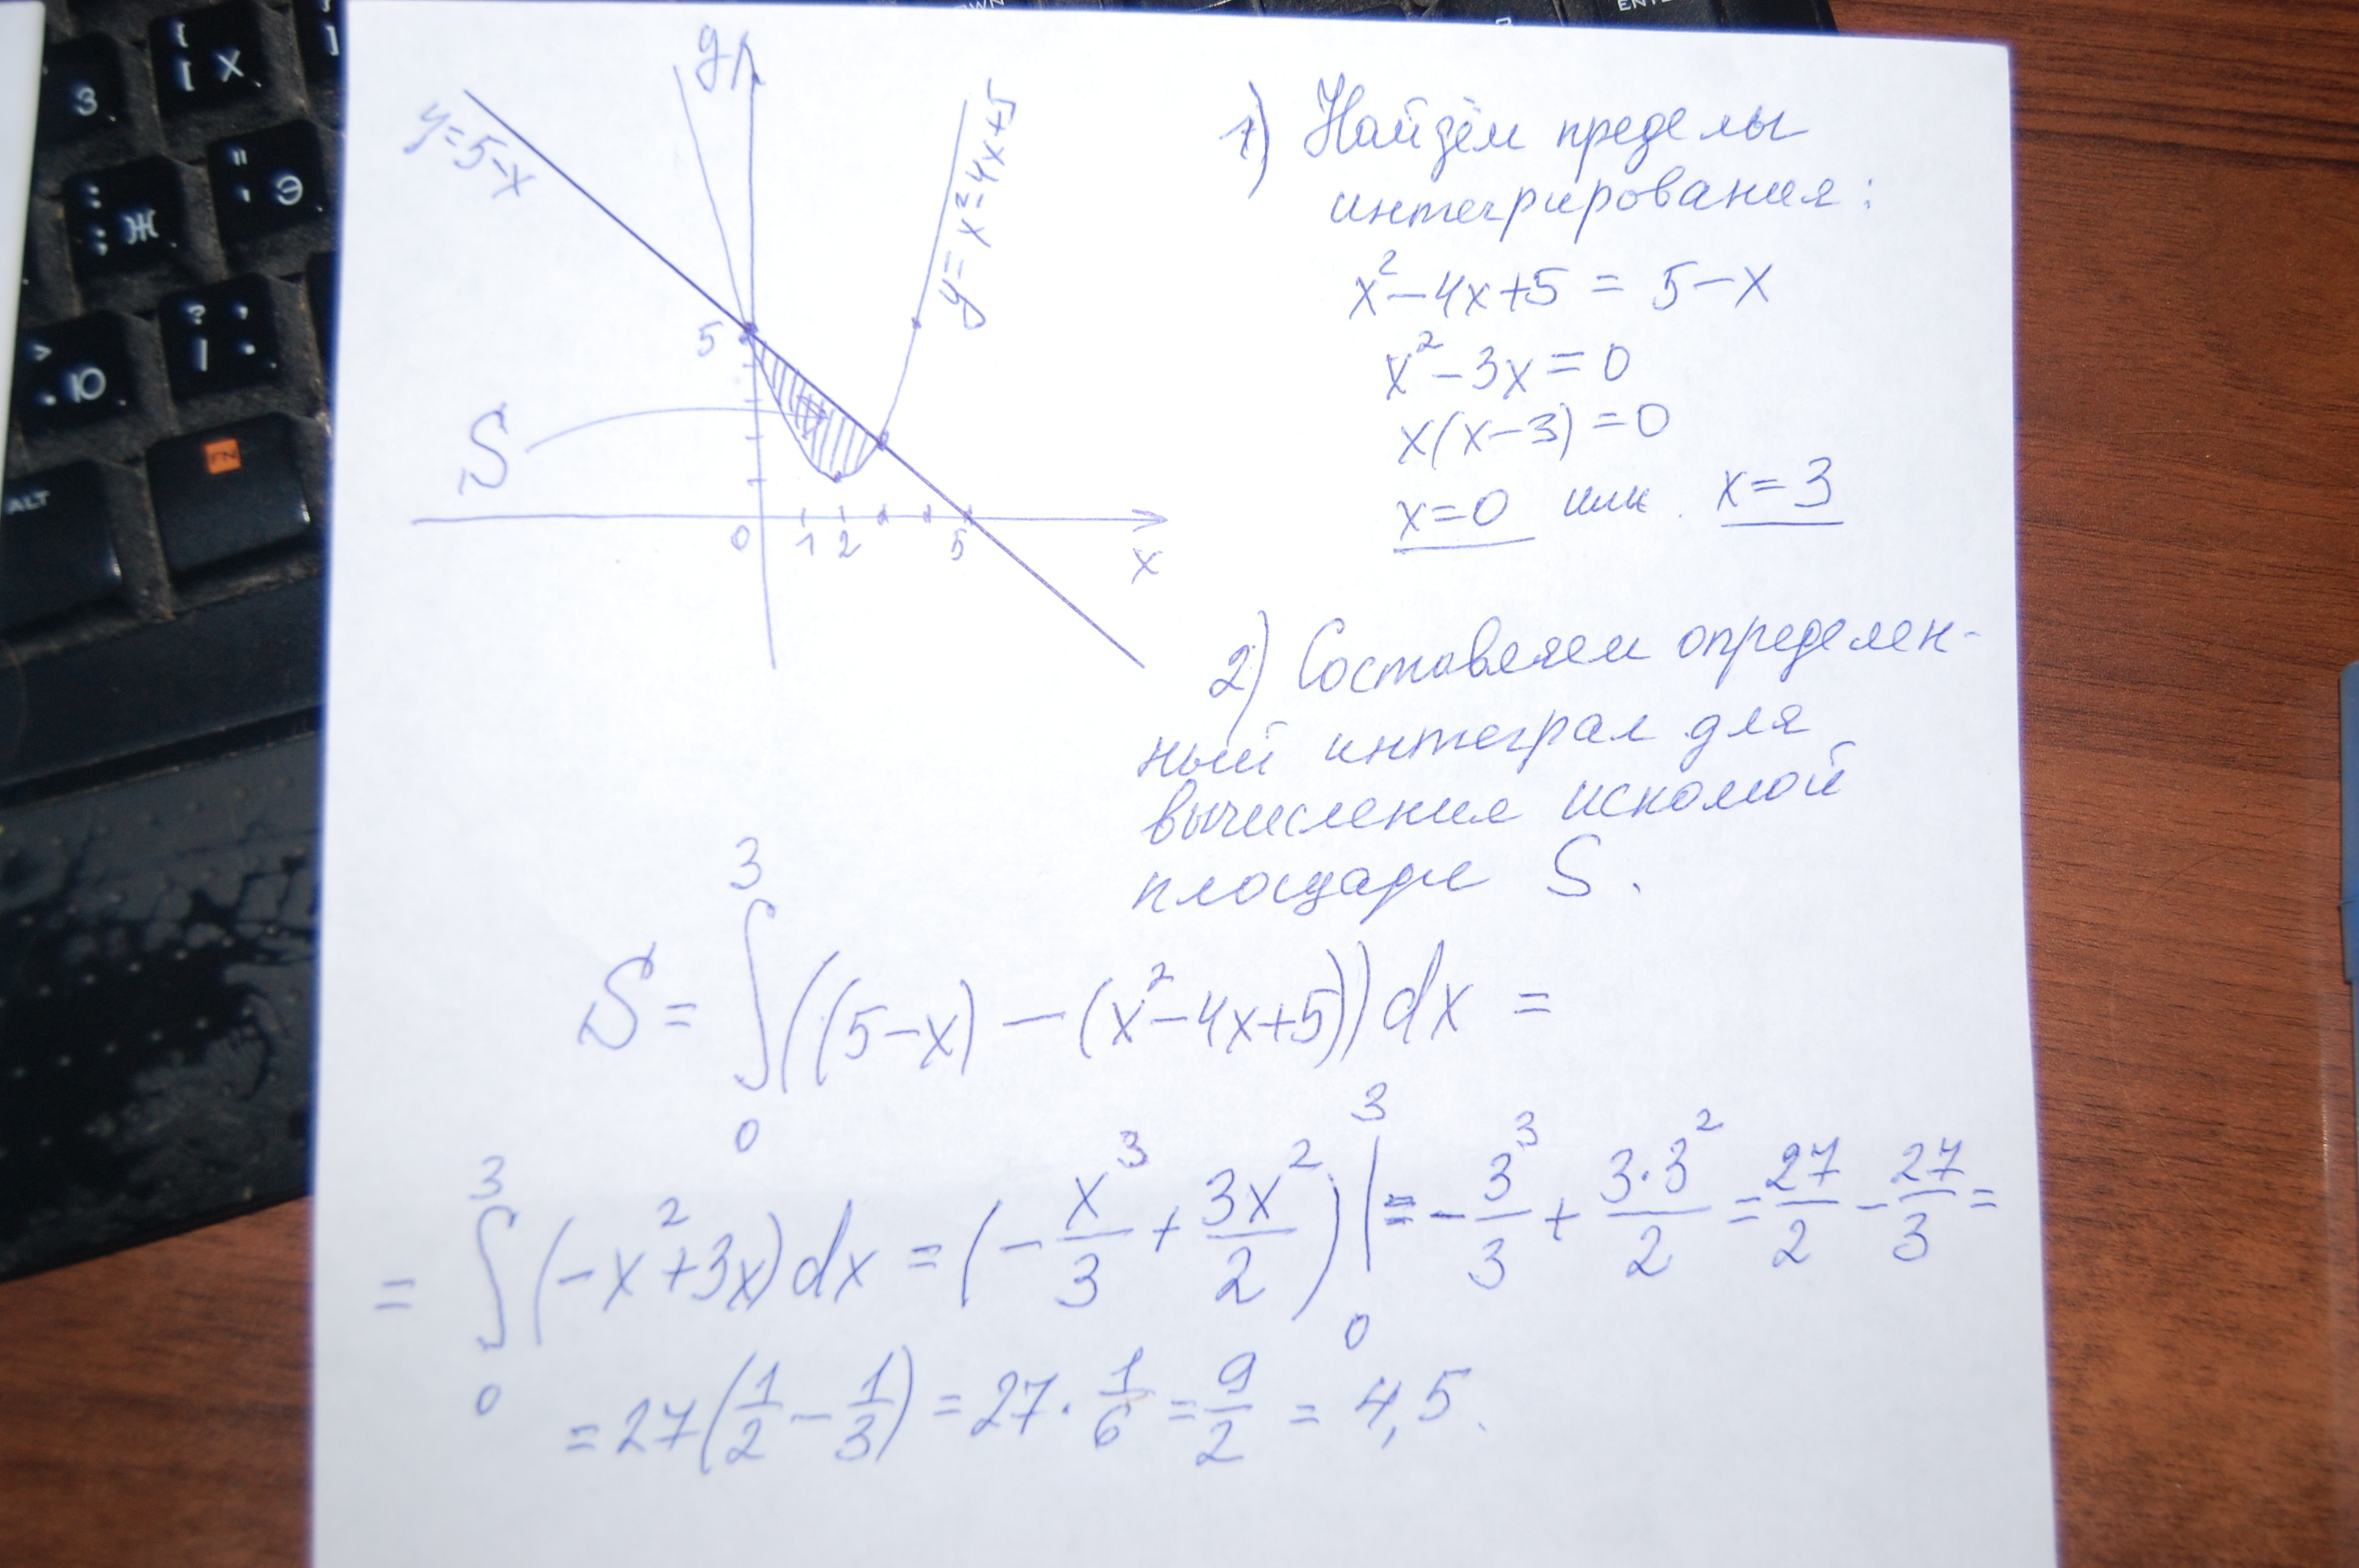 y
y=5-x
y=x²-4x+5
5
S
0 1 2 5
x
1) Найдём пределы
интегрирования:
x²-4x+5 = 5-x
x²-3x=0
x(x-3)=0
x=0 или x=3
2) Составляем определен-
ный интеграл для
вычисления искомой
площади S.
S = ∫₀³((5-x) - (x²-4x+5))dx =
= ∫₀³(-x²+3x)dx = (-x³/3 + 3x²/2)|₀³ = -3³/3 + 3·3²/2 = 27/2 - 27/3 =
= 27(1/2 - 1/3) = 27·1/6 = 9/2 = 4,5.
З
{ [ Х
]
" ' Э
: ; Ж
? , / .
> . Ю
ALT
FN
ENT